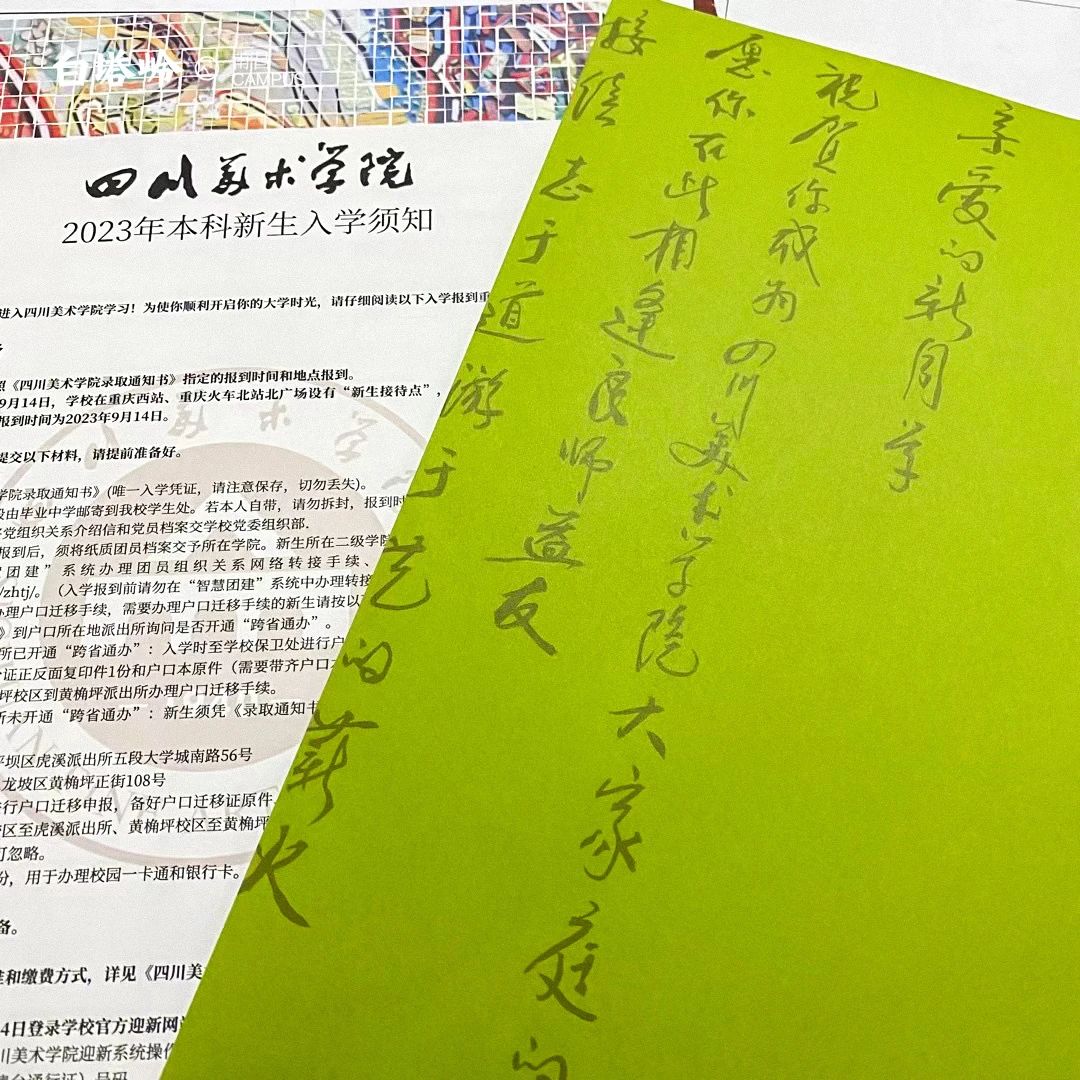 白塔岭 © 制面
CAMPUS
四川美术学院
2023年本科新生入学须知
进入四川美术学院学习！为使你顺利开启你的大学时光，请仔细阅读以下入学报到重
照《四川美术学院录取通知书》指定的报到时间和地点报到。
9月14日，学校在重庆西站、重庆火车北站北广场设有“新生接待点”，
报到时间为2023年9月14日。
提交以下材料，请提前准备好。
学院录取通知书》(唯一入学凭证，请注意保存，切勿丢失)。
段由毕业中学邮寄到我校学生处。若本人自带，请勿拆封，报到时
将党组织关系介绍信和党员档案交学校党委组织部.
报到后，须将纸质团员档案交予所在学院。新生所在二级学院
团建”系统办理团员组织关系网络转接手续、
/zhtj/。（入学报到前请勿在“智慧团建”系统中办理转接
办理户口迁移手续，需要办理户口迁移手续的新生请按以
》到户口所在地派出所询问是否开通“跨省通办”。
所已开通“跨省通办”：入学时至学校保卫处进行户
份证正反面复印件1份和户口本原件（需要带齐户口本
坪校区到黄桷坪派出所办理户口迁移手续。
所未开通“跨省通办”：新生须凭《录取通知书
坪坝区虎溪派出所五段大学城南路56号
龙坡区黄桷坪正街108号
进行户口迁移申报，备好户口迁移证原件、
校区至虎溪派出所、黄桷坪校区至黄桷坪
可忽略。
份，用于办理校园一卡通和银行卡。
备。
准和缴费方式，详见《四川美
4日登录学校官方迎新网
川美术学院迎新系统操作
通行证）号码
亲爱的新同学
祝贺你成为四川美术学院大家庭的
愿你在此相逢良师益友
接续志于道游于艺的薪火